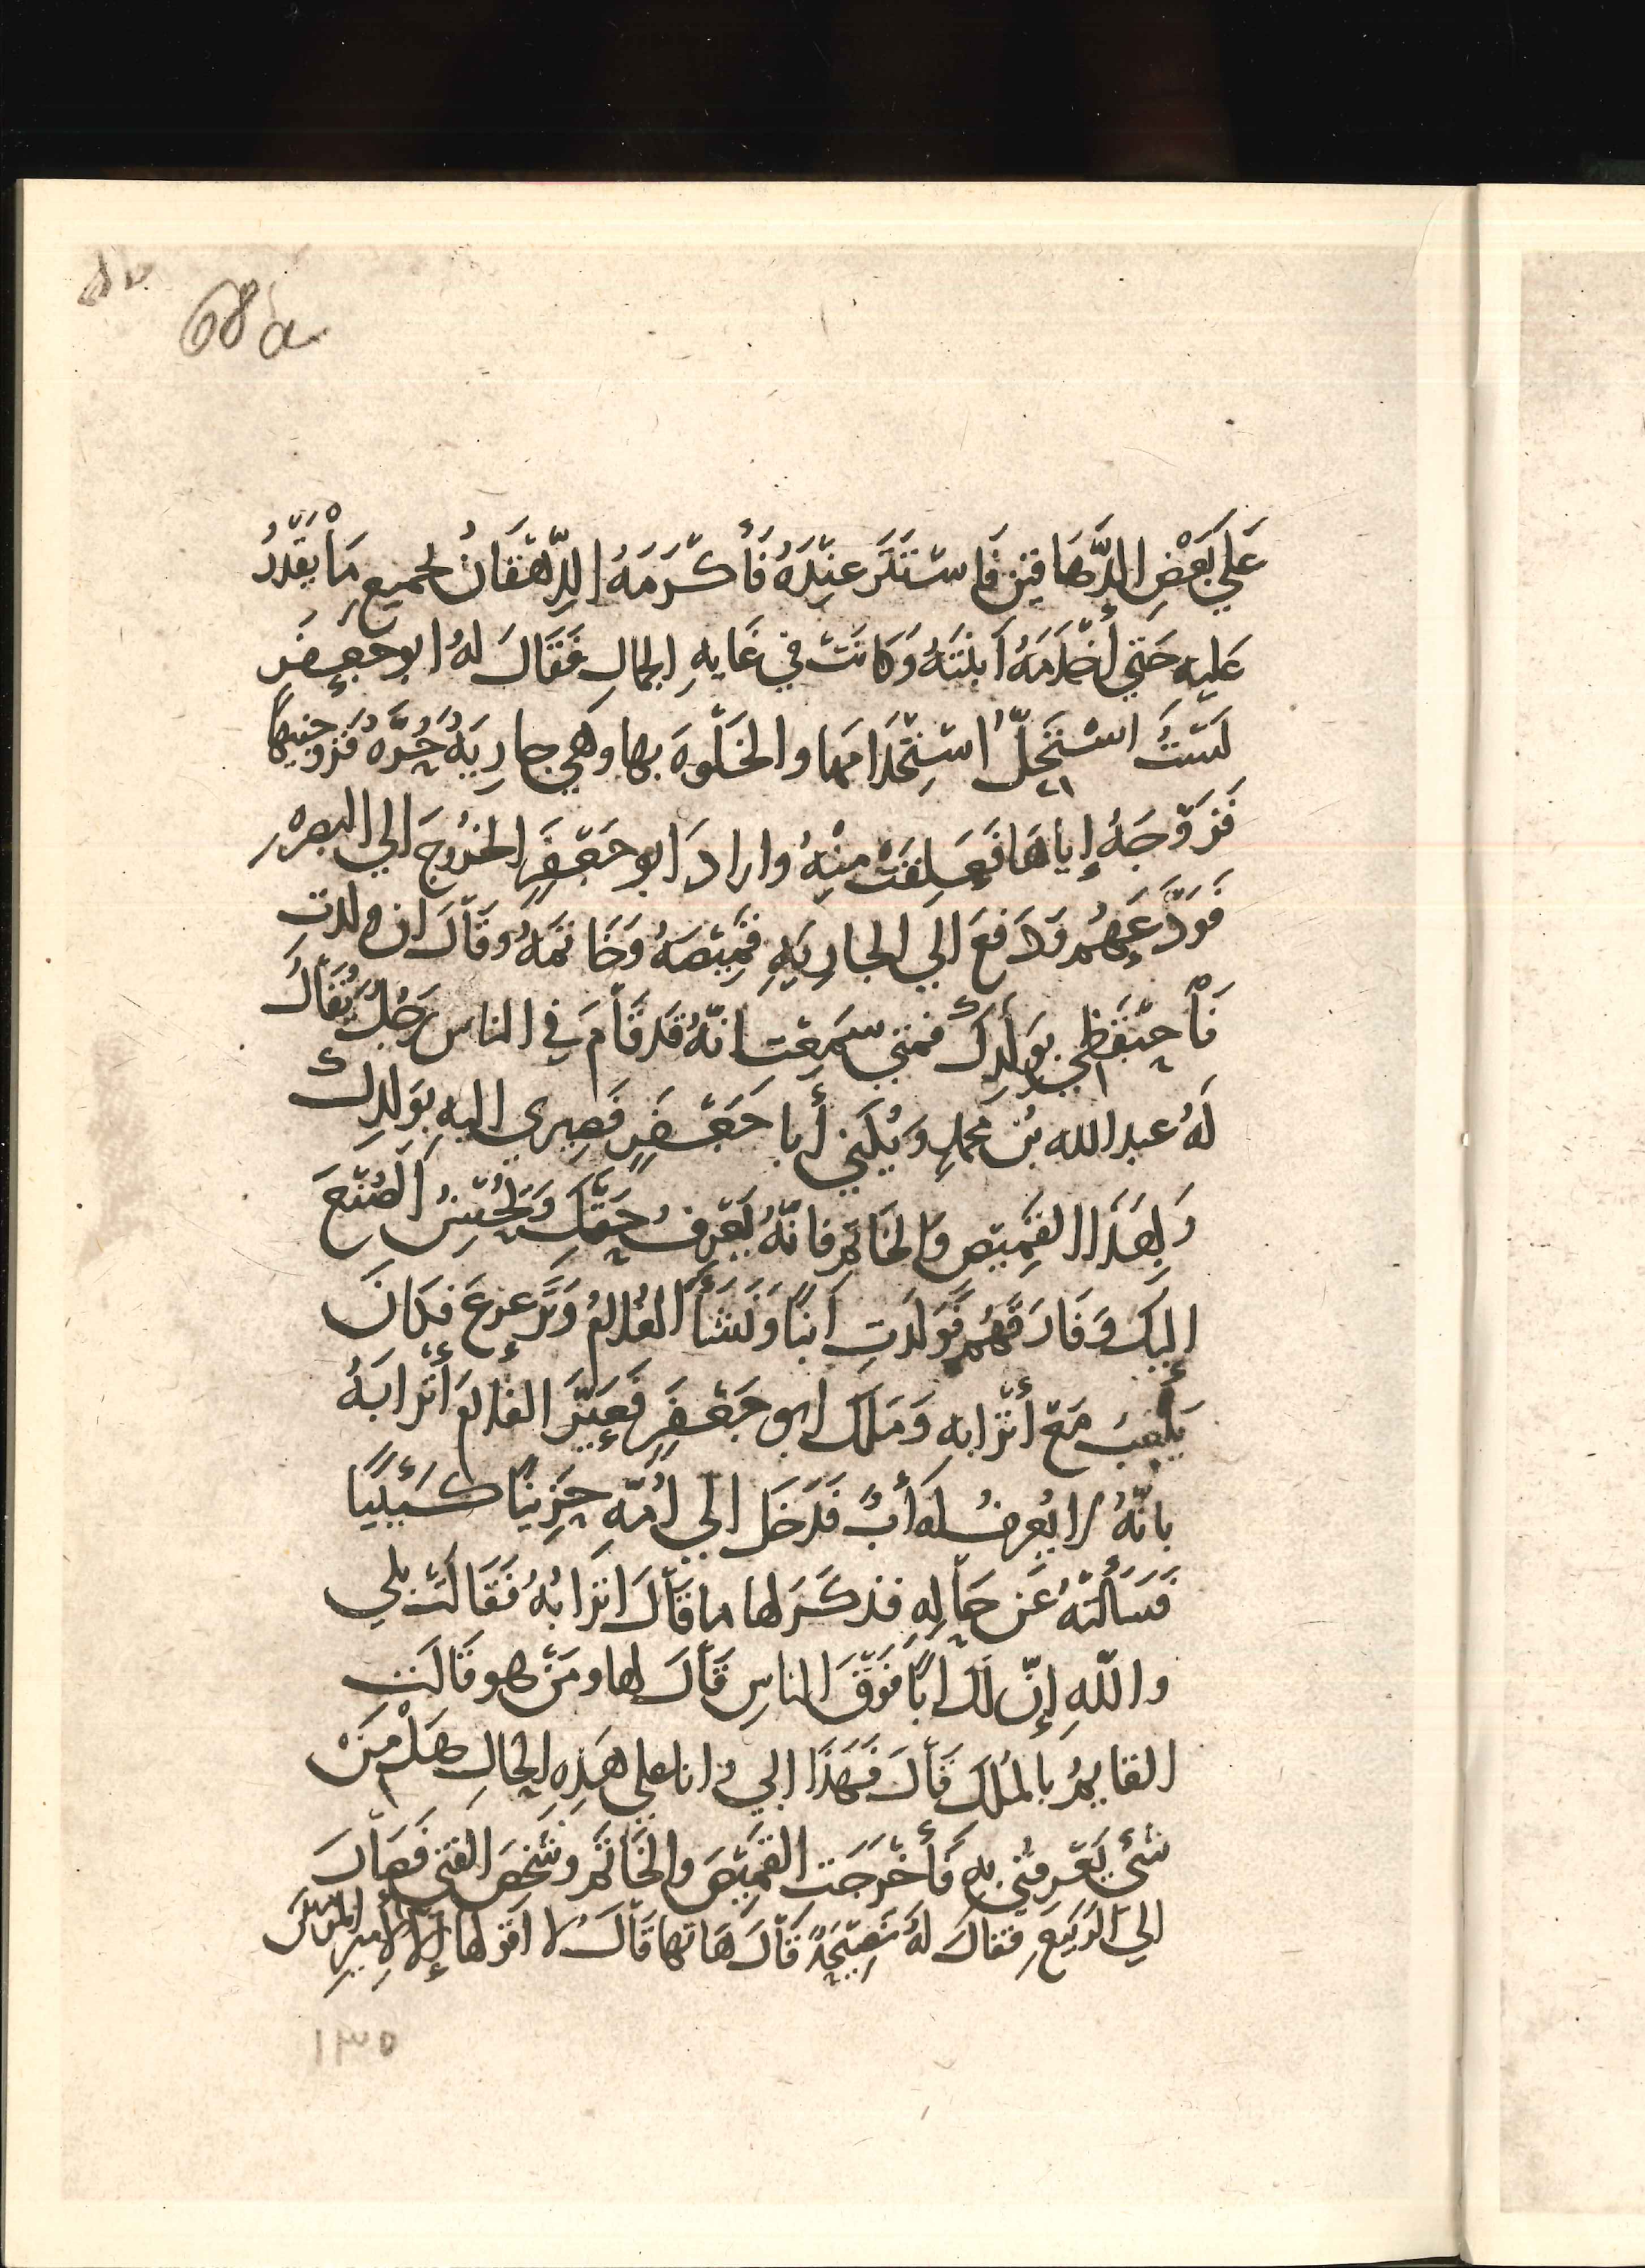 68a
عَلي بَعْضِ الدَّهَاقين فَاستَتَرَ عِنْدَهُ فَأكْرَمَهُ الدِّهْقَانُ بجميعِ مَا يَقْدِرُ
عَليهِ حَتي أخْدَمَهُ أبنَتَهُ وَكَانَتْ في غَايهِ الجمالِ فَقَالَ لهُ ابو جعفَر
لَسْتُ اسْتَحِلُّ اسْتِخْدَامَهَا والخَلْوهَ بها وهَي جارِيَهٌ حُرَّهٌ فَزوجنِيهَا
فَزَوَّجَهُ إياهَا فَعَلِقَتْ مِنْهُ واراد ابو جَعْفَرِ الخرُوجَ الي البصرهِ
فَوَدَّعَهُم وَدَفَعَ الي الجارِيَهِ قمِيْصَهُ وَخَاتمَهُ وقَالَ ان ولدتِ
فَاحتَفظي بوَلَدِكِ فمتي سَمِعْتِ انّهُ قَد قَامَ في الناس رَجُلٌ يُقَالُ
لَهُ عبد الله بن محمدٍ وَيُكني أبا جَعْفَرٍ فَصِيري اليهِ بوَلدِكِ
وَبِهَذَا القمِيْصِ والخَاتمِ فانّهُ يَعْرِفُ حَقَّكِ وَيُحْسِنُ الصُنْعَ
إليكِ وَفَارَقَهُم فَولَدَتِ ابنًا وَنَشَأَ الغُلامُ وَتَرَعرعَ فكَانَ
يَلْعبُ مَعَ أتْرابهِ وَمَلَكَ ابو جَعْفَرٍ فَعَيَّرَ الغلامَ أتْرابَهُ
بانّهُ لا يُعرفُ لَه أبٌ فَدَخَلَ الي اُمّهِ حَزِينًا كئيبًا
فَسَألَتْهُ عَن حَالِهِ فذكَرَ لها ما قَالَ اتْرَابُهُ فَقَالَتْ بلي
واللّهِ إنّ لَكَ ابًا فَوْقَ الناسِ قَالَ لها ومَنْ هو قَالَت
القايمُ بالمُلكِ قَالَ فَهَذَا ابي وانا علي هَذِهِ الحَالِ هَلْ مِنْ
شئٍ يَعْرِفُني بهِ فَأخْرَجَت القمِيْصَ والخَاتَم وشَخصَ الفتي فَصَارَ
الي الرَبيعِ فقالَ لهُ نَصِيْحَهٌ قَالَ هَاتها قَالَ لا اقولها إلا لأميرِ المؤمنين
١٣٥